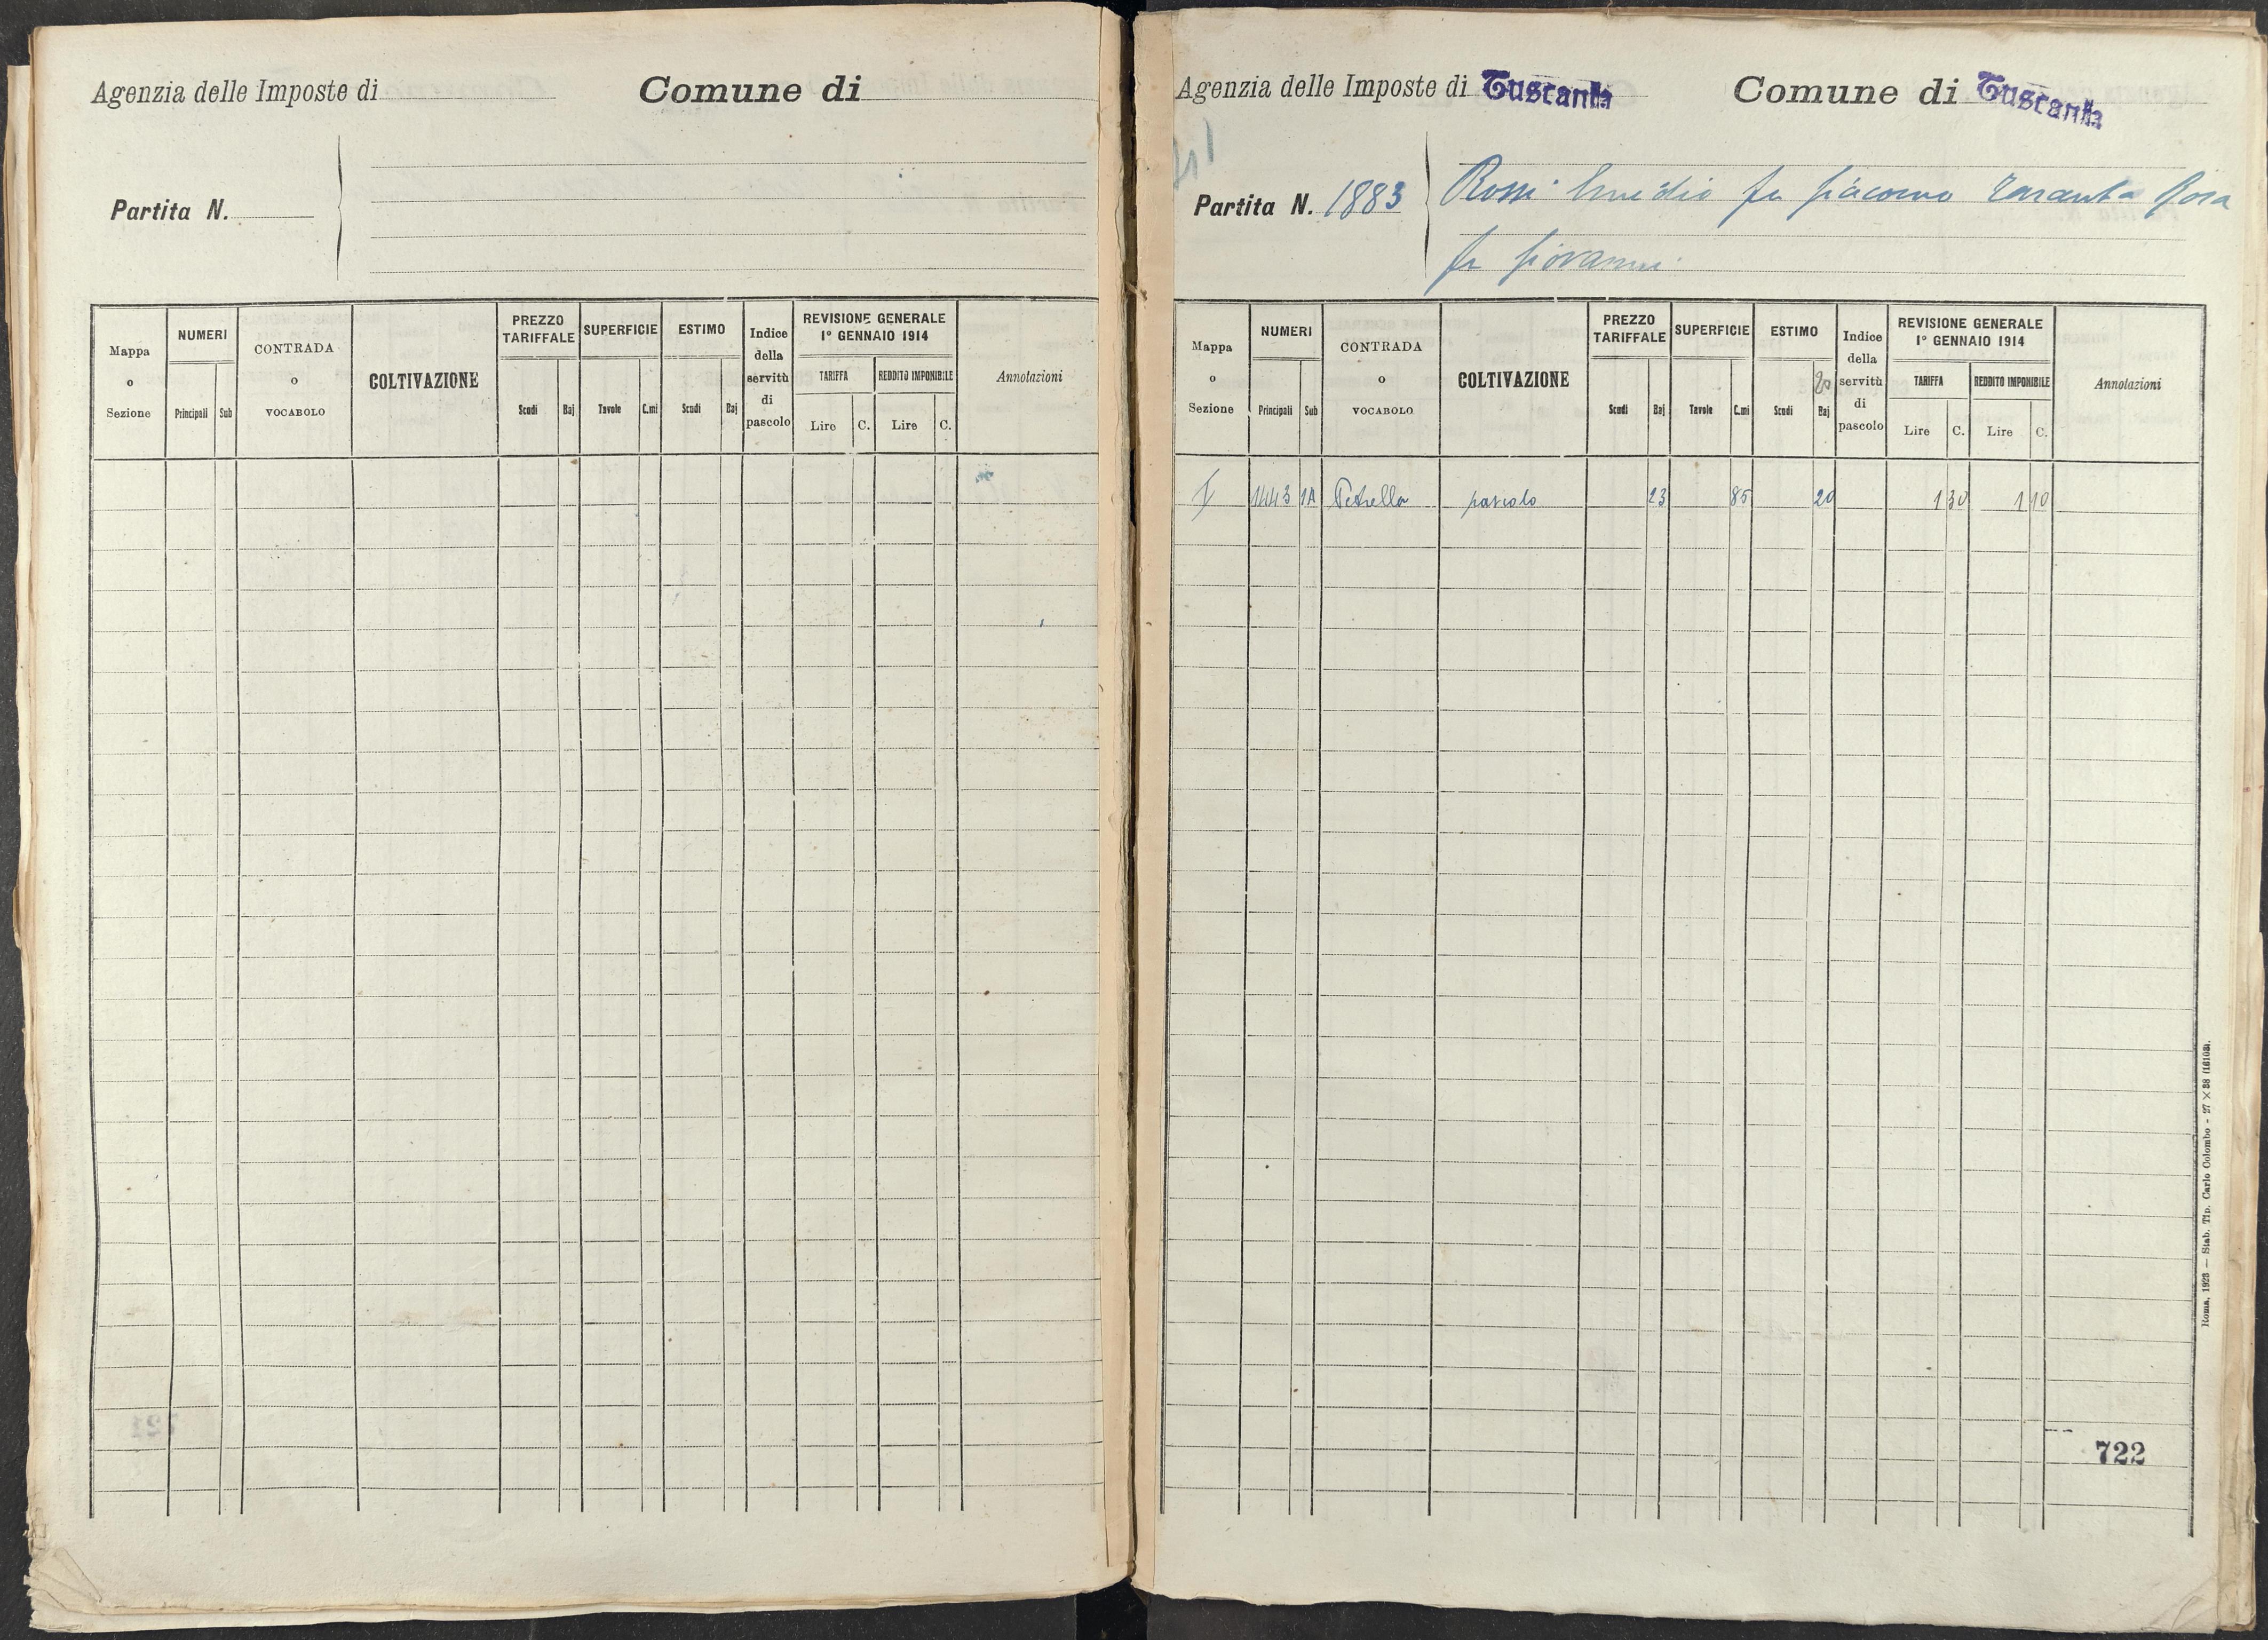 Agenzia delle Imposte di
Comune di
Partita N.
Mappa o Sezione
NUMERI
Principali
Sub
CONTRADA o VOCABOLO
COLTIVAZIONE
PREZZO TARIFFALE
Scudi
Baj
SUPERFICIE
Tavole
C.mi
ESTIMO
Scudi
Baj
Indice della servitù di pascolo
REVISIONE GENERALE
1° GENNAIO 1914
TARIFFA
Lire
C.
REDDITO IMPONIBILE
Lire
C.
Annotazioni
Agenzia delle Imposte di Tuscania
Comune di Tuscania
Partita N. 1883
Rossi Emidio fu Giacomo Taranta Rosa
fu Giovanni
Mappa o Sezione
NUMERI
Principali
Sub
CONTRADA o VOCABOLO
COLTIVAZIONE
PREZZO TARIFFALE
Scudi
Baj
SUPERFICIE
Tavole
C.mi
ESTIMO
Scudi
Baj
Indice della servitù di pascolo
REVISIONE GENERALE
1° GENNAIO 1914
TARIFFA
Lire
C.
REDDITO IMPONIBILE
Lire
C.
Annotazioni
1443 1A Petrella pascolo 23 85 20 1 30 1 10
722
Roma, 1923 — Stab. Tip. Carlo Colombo - 27 × 38 (16103).